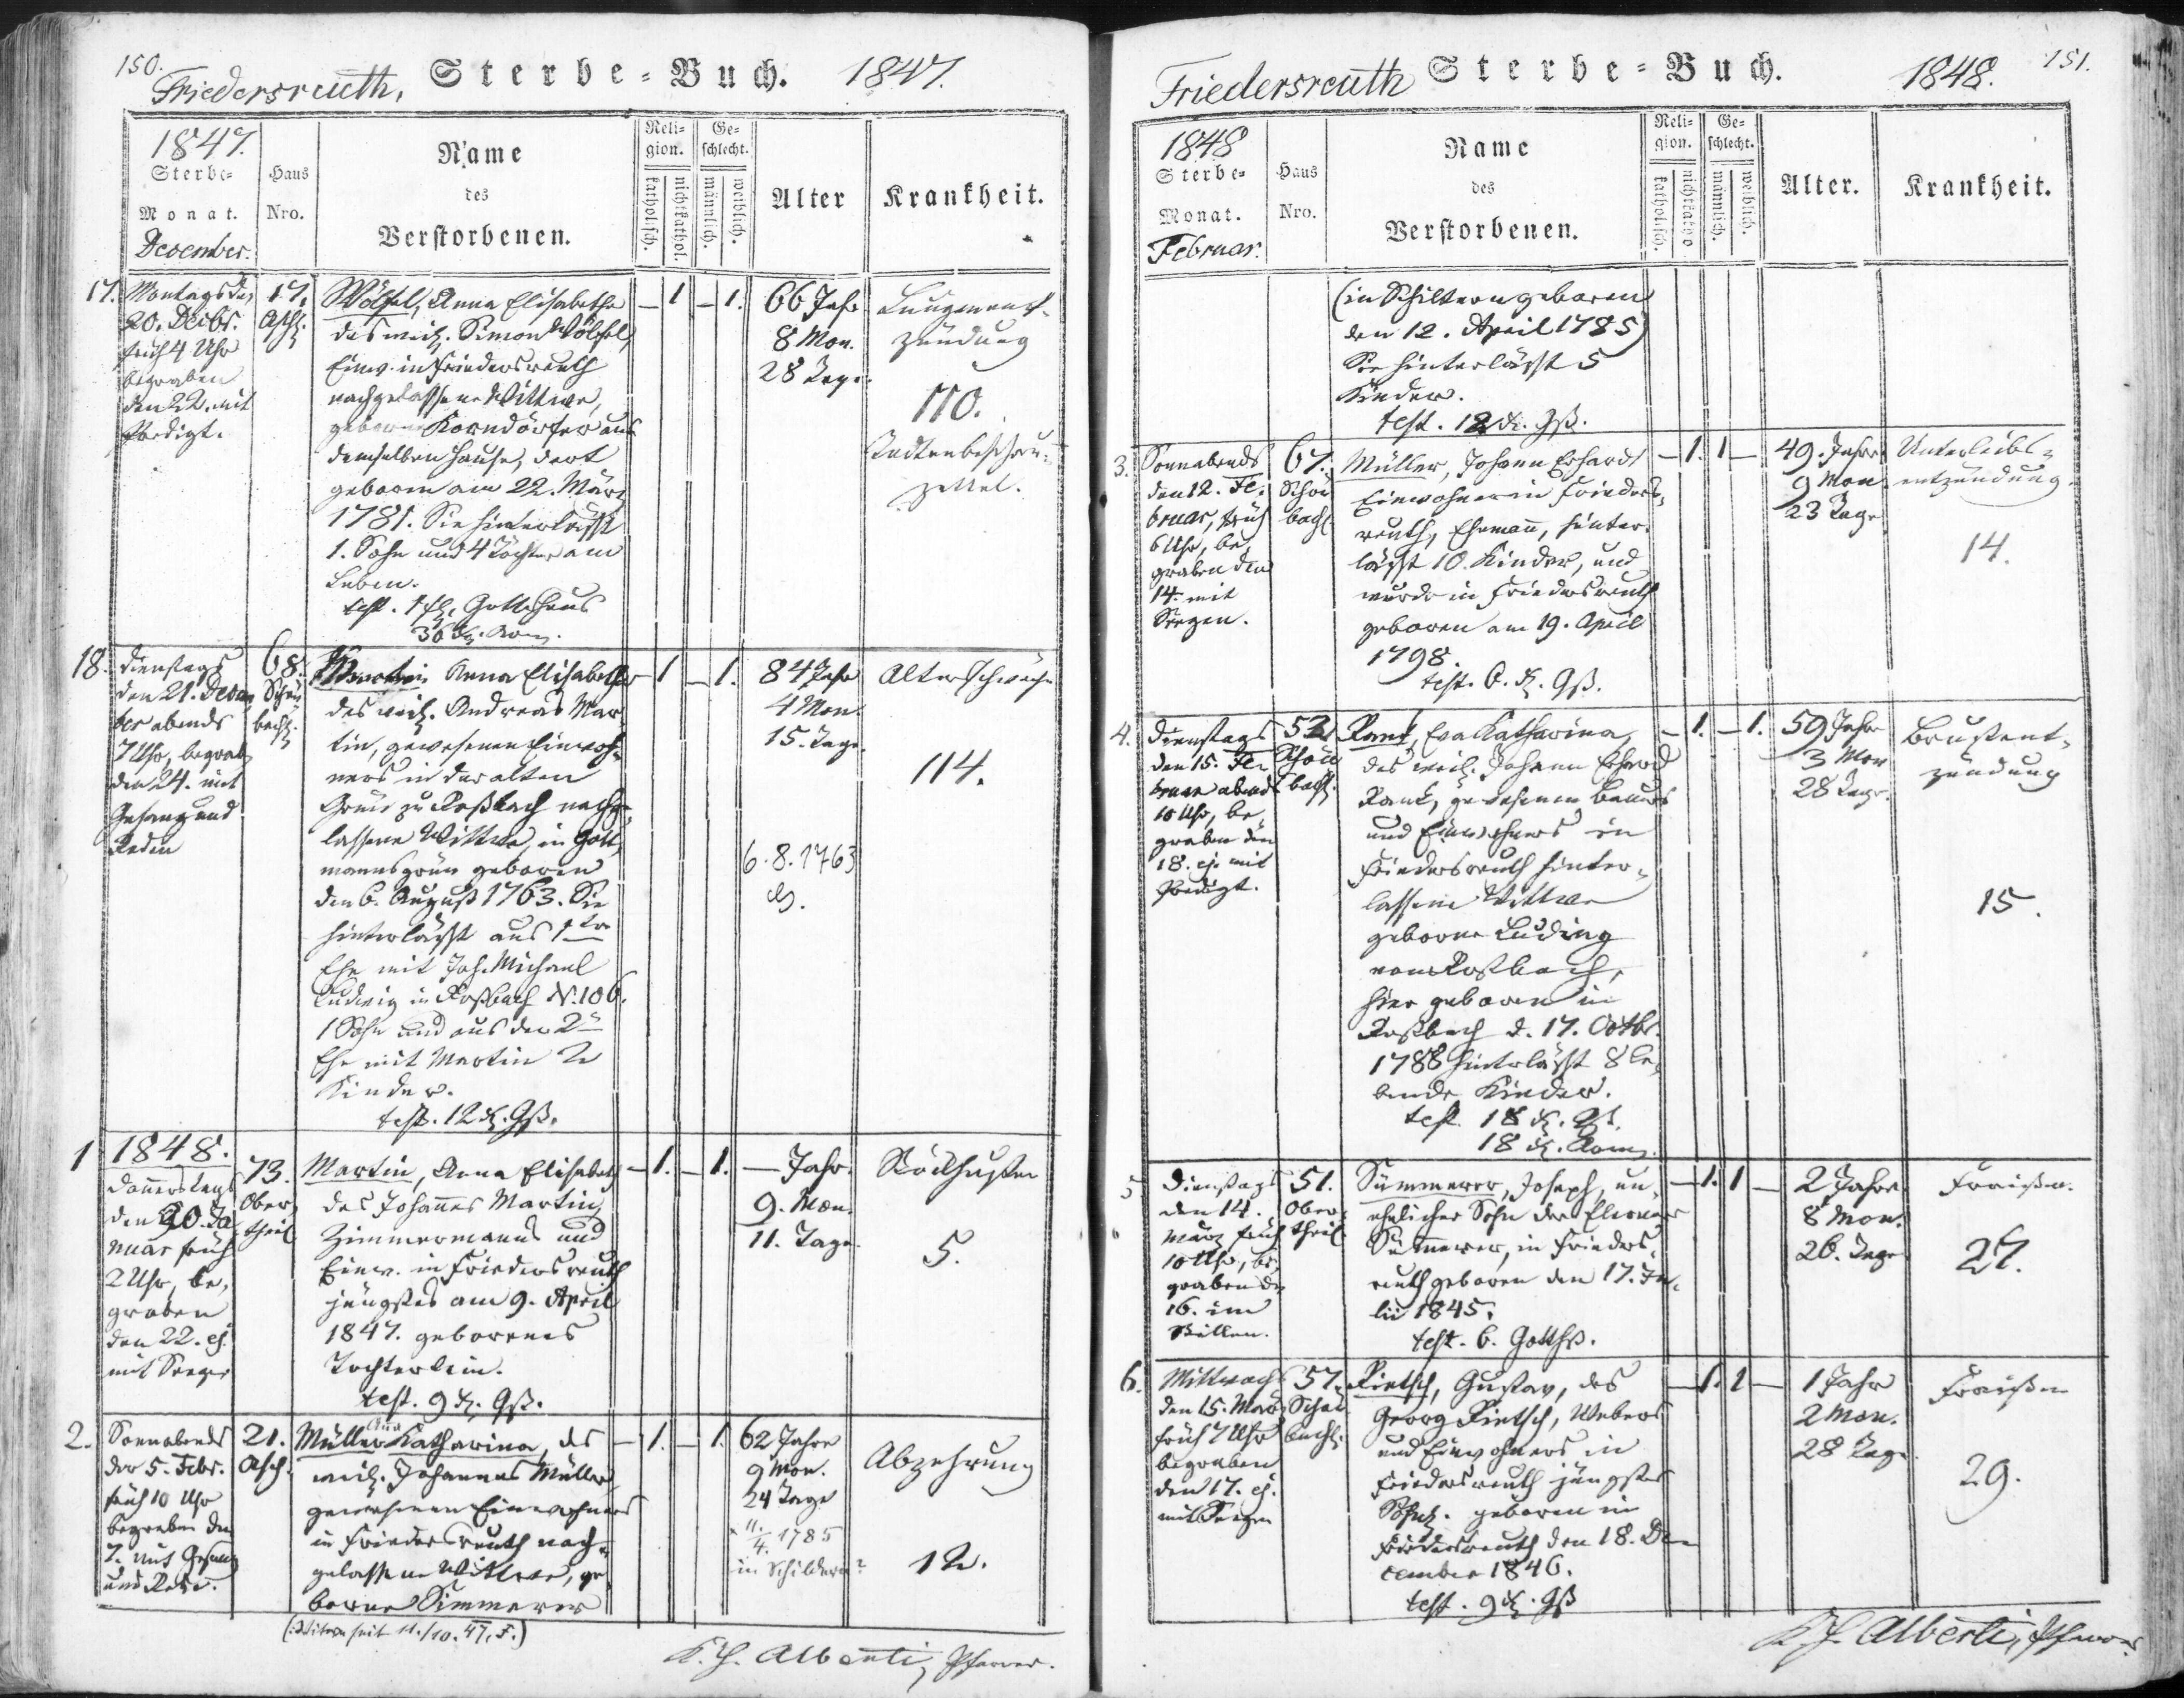 150.
Friedersreuth, Sterbe-Buch. 1847.
1847.
Sterbe-
Monat.
December.
Haus
Nro.
Name
des
Verstorbenen.
Reli-
gion.
katholisch.
nichtkathol.
Ge-
schlecht.
männlich.
weiblich.
Alter
Krankheit.
17.
Montags den
20. Decbr.
früh 4 Uhr
begraben
den 22. mit
Predigt.
17.
Asch.
Wölfel, Anna Elisabetha
des weil. Simon Wölfel,
Einw. in Friedersreuth
nachgelassene Wittwe,
geborne Korndörfer aus
demselben Hause, dort
geboren am 22. März
1781. Sie hinterläßt
1. Sohn und 4 Töchter am
Leben.
test. 1 fl. Gotteshaus
36
– 1 – 1.
66 Jahr
8 Mon.
28 Tage.
Lungenent-
zündung
110.
Todtenbeschau-
zettel.
18.
Dienstags
den 21. Decem
ber abends
7 Uhr, begrab.
den 24. mit
Gesang und
Reden
68.
Schön
bach.
Martin Anna Elisabetha
des weil. Andreas Mar
tin, gewesenen Einwoh-
ners in der alten
zu Roßbach nachge-
lassene Wittwe, in Gott
mannsgrün geboren
den 6. August 1763. Sie
hinterläßt aus 1ter
Ehe mit Joh. Michael
Ludwig in Roßbach N. 106.
1 Sohn und aus der 2n
Ehe mit Martin 2
Kinder.
test. 12 x. Gß.
– 1 – 1.
84 Jahr
4 Mon.
15. Tage.
6.8.1763
Altersschwäche
114.
1
1848.
Donnerstags
den 20. Ja
nuar früh
2 Uhr, be-
graben
den 22. ej.
mit Segen
73.
Ober
theil
Martin, Anna Elisabeth
des Johannes Martin,
Zimmermanns und
Einw. in Friedersreuth
jüngstes am 9. April
1847. geborenes
Töchterlein.
test. 9 x. Gß.
– 1. – 1.
– Jahr.
9. Mon.
11. Tage.
Stickhusten
5.
2.
Sonnabends
den 5. Febr.
früh 10 Uhr
begraben den
7. mit Gesang
und Rede.
21.
Asch.
Müller Katharina, des
weil. Johannes Müller
gewesenen Einwohners
in Friedersreuth nach-
gelassene Wittwe, ge
borne Simmerer
(Witwe seit 11./10. 47, F.)
– 1. – 1.
62 Jahre
9 Mon.
24 Tage
* 11./4. 1785
in Schildern?
Abzehrung
12.
K. H. Alberti, Pfarrer.
151.
Friedersreuth Sterbe-Buch. 1848.
1848
Sterbe-
Monat.
Februar.
Haus
Nro.
Name
des
Verstorbenen.
Reli-
gion.
katholisch.
nichtkatho
Ge-
schlecht.
männlich.
weiblich.
Alter.
Krankheit.
(in Schiltern geboren
den 12. April 1785)
Sie hinterläßt 5
Kinder.
test. 12 x. Gß.
3.
Sonnabends
den 12. Fe-
bruar, früh
6 Uhr, be-
graben den
14. mit
Seegen.
67.
Schön
bach
Müller, Johann Erhardt
Einwohner in Frieders-
reuth, Ehemann, hinter-
läßt 10. Kinder, und
wurde in Friedersreuth
geboren am 19. April
1798.
test. 6. x. Gß.
– 1. 1 –
49. Jahre
9 Mon.
23 Tage
Unterleibs-
entzündung.
14.
4.
Dienstags
den 15. Fe-
bruar abends
10 Uhr, be-
graben den
18. ej. mit
Predigt.
52
Schön
bach.
Rank, Eva Katharina,
des weil. Johann Erhard
Rank, gewesenen Bauers
und Einwohners in
Friedersreuth hinter-
lassene Wittwe
geborne Luding
von Roßbach,
hier geboren in
Roßbach d. 17. Octbr.
1788 hinterläßt 8 le-
bende Kinder.
test. 18 x. Gß.
18 x.
– 1. – 1.
59 Jahr
3 Mon
28 Tage.
Brustent-
zündung
15.
5
Dienstags
den 14.
März früh
10 Uhr, be-
graben den
16. im
Stillen.
51.
Ober-
theil
Simmerer, Joseph, un-
ehelicher Sohn der Eleonore
Simmerer, in Frieders-
reuth geboren den 17. Ju-
lii 1845.
test. 6. Gotthß.
– 1. 1 –
2 Jahre
8 Mon.
26. Tage
Fraißen.
27.
6.
Mittwochs
den 15. März
früh 7 Uhr
begraben
den 17. ej.
mit Seegen
57.
Schön
bach.
Rietsch, Gustav, des
Georg Rietsch, Webers
und Einwohners in
Friedersreuth jüngstes
Söhnl. geboren in
Friedersreuth den 18. De-
cember 1846.
test. 9 x. Gß
– 1. 1 –
1 Jahr
2 Mon.
28 Tage
Fraißen
29.
K. H. Alberti, Pfarrer.